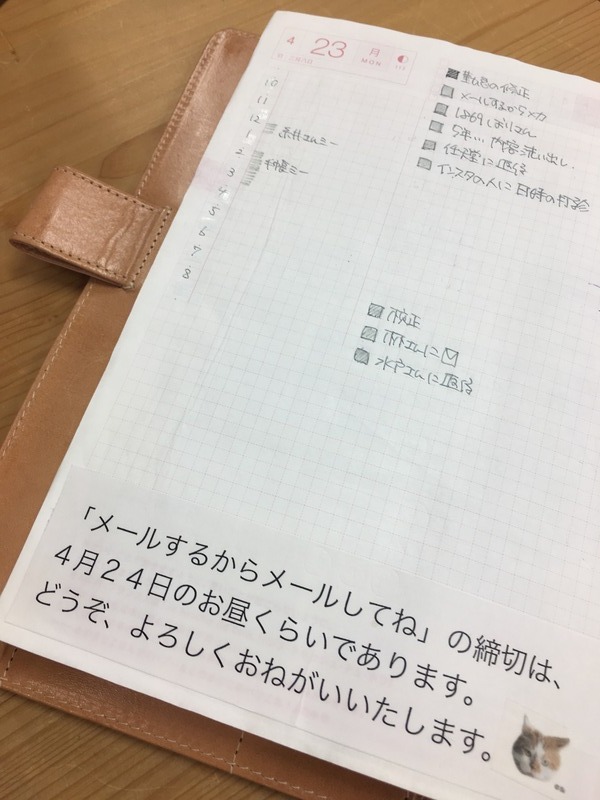 4
23
月
MON
10
11
12
1
2
3
4
5
6
7
8
糸井さんミー
ミー
の修正
メールするからメカ
ほぼ日しおりさん
5年… 内容洗い出し
任天堂に返信
インスタの人に日時の打診
校正
さんに
さんに返信
「メールするからメールしてね」の締切は、
４月２４日のお昼くらいであります。
どうぞ、よろしくおねがいいたします。